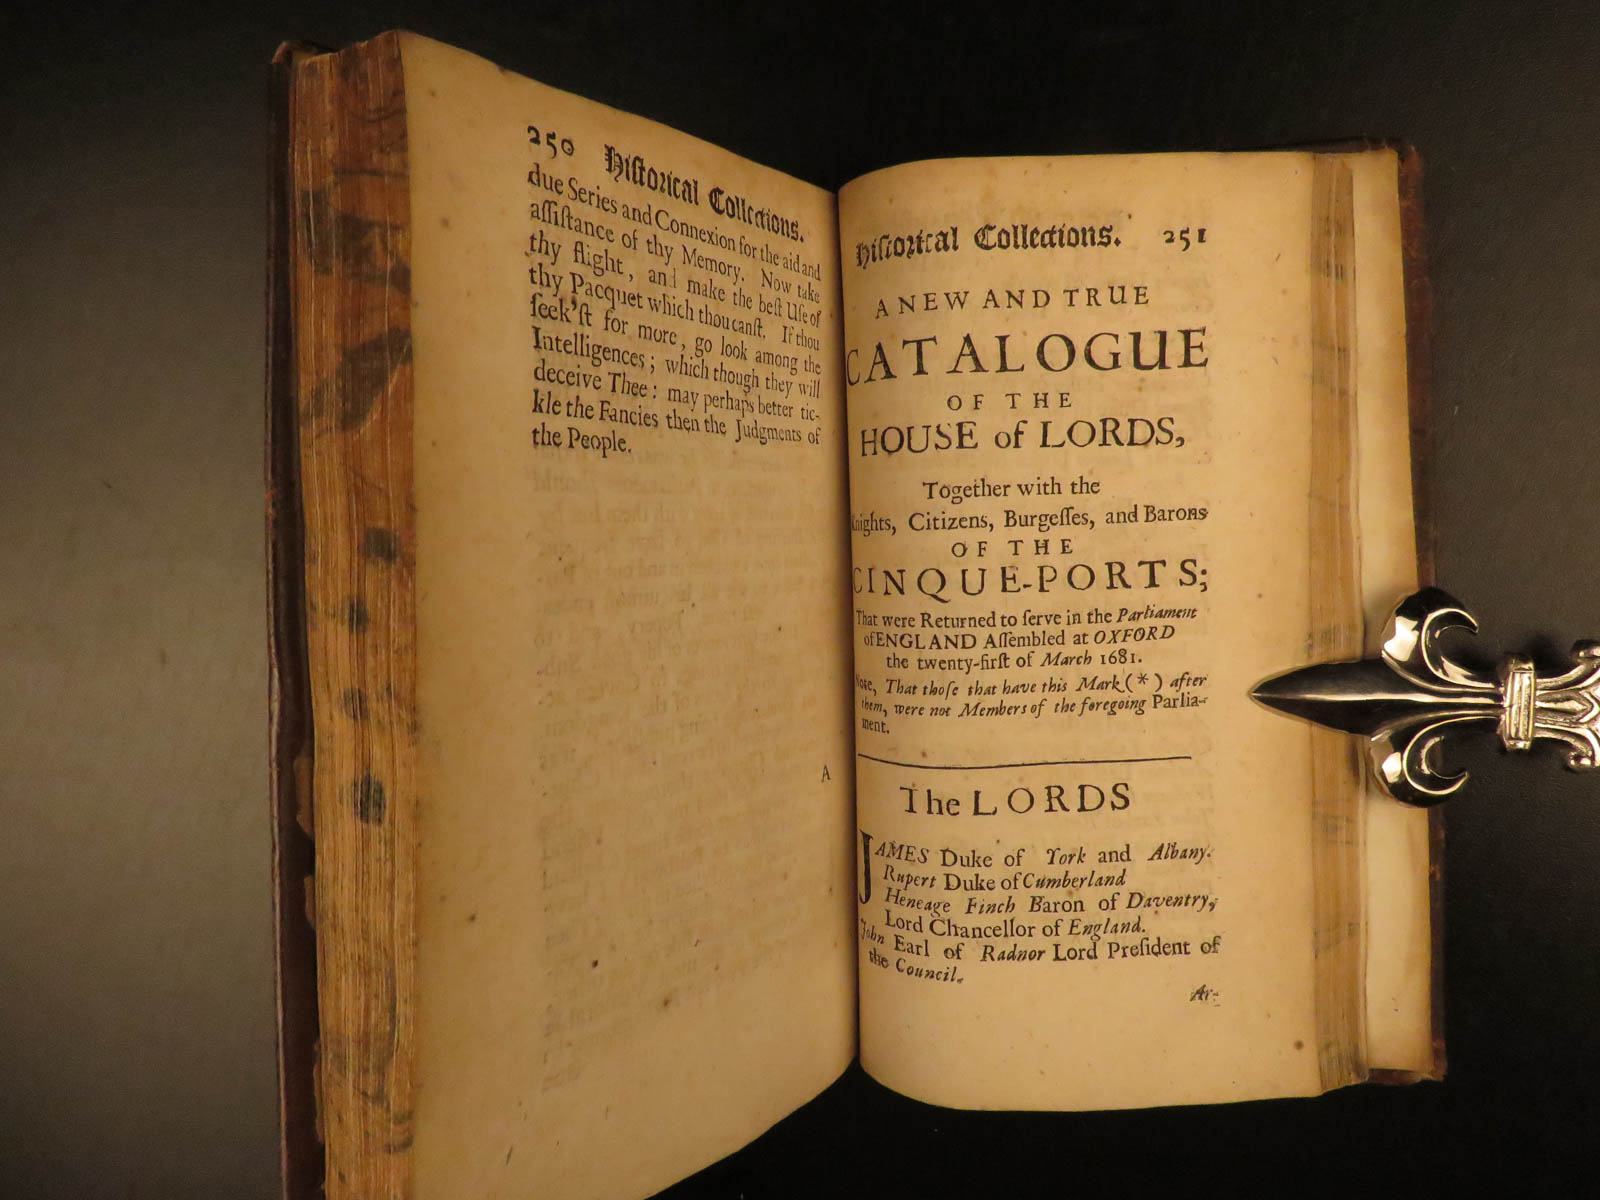 250 Historical Collections.
due Series and Connexion for the aid and
aſſiſtance of thy Memory. Now take
thy flight, and make the beſt Uſe of
thy Pacquet which thou canſt. If thou
ſeek'ſt for more, go look among the
Intelligences; which though they will
deceive Thee: may perhaps better tic-
kle the Fancies then the Judgments of
the People.
A
Hiſtorical Collections. 251
A NEW AND TRUE
CATALOGUE
OF THE
HOUSE of LORDS,
Together with the
Knights, Citizens, Burgeſſes, and Barons
OF THE
CINQUE-PORTS;
That were Returned to ſerve in the Parliament
of ENGLAND Aſſembled at OXFORD
the twenty-firſt of March 1681.
Note, That thoſe that have this Mark (*) after
them, were not Members of the foregoing Parlia-
ment.
The LORDS
JAMES Duke of York and Albany.
Rupert Duke of Cumberland
Heneage Finch Baron of Daventry,
Lord Chancellor of England.
John Earl of Radnor Lord Preſident of
the Council.
Ar-